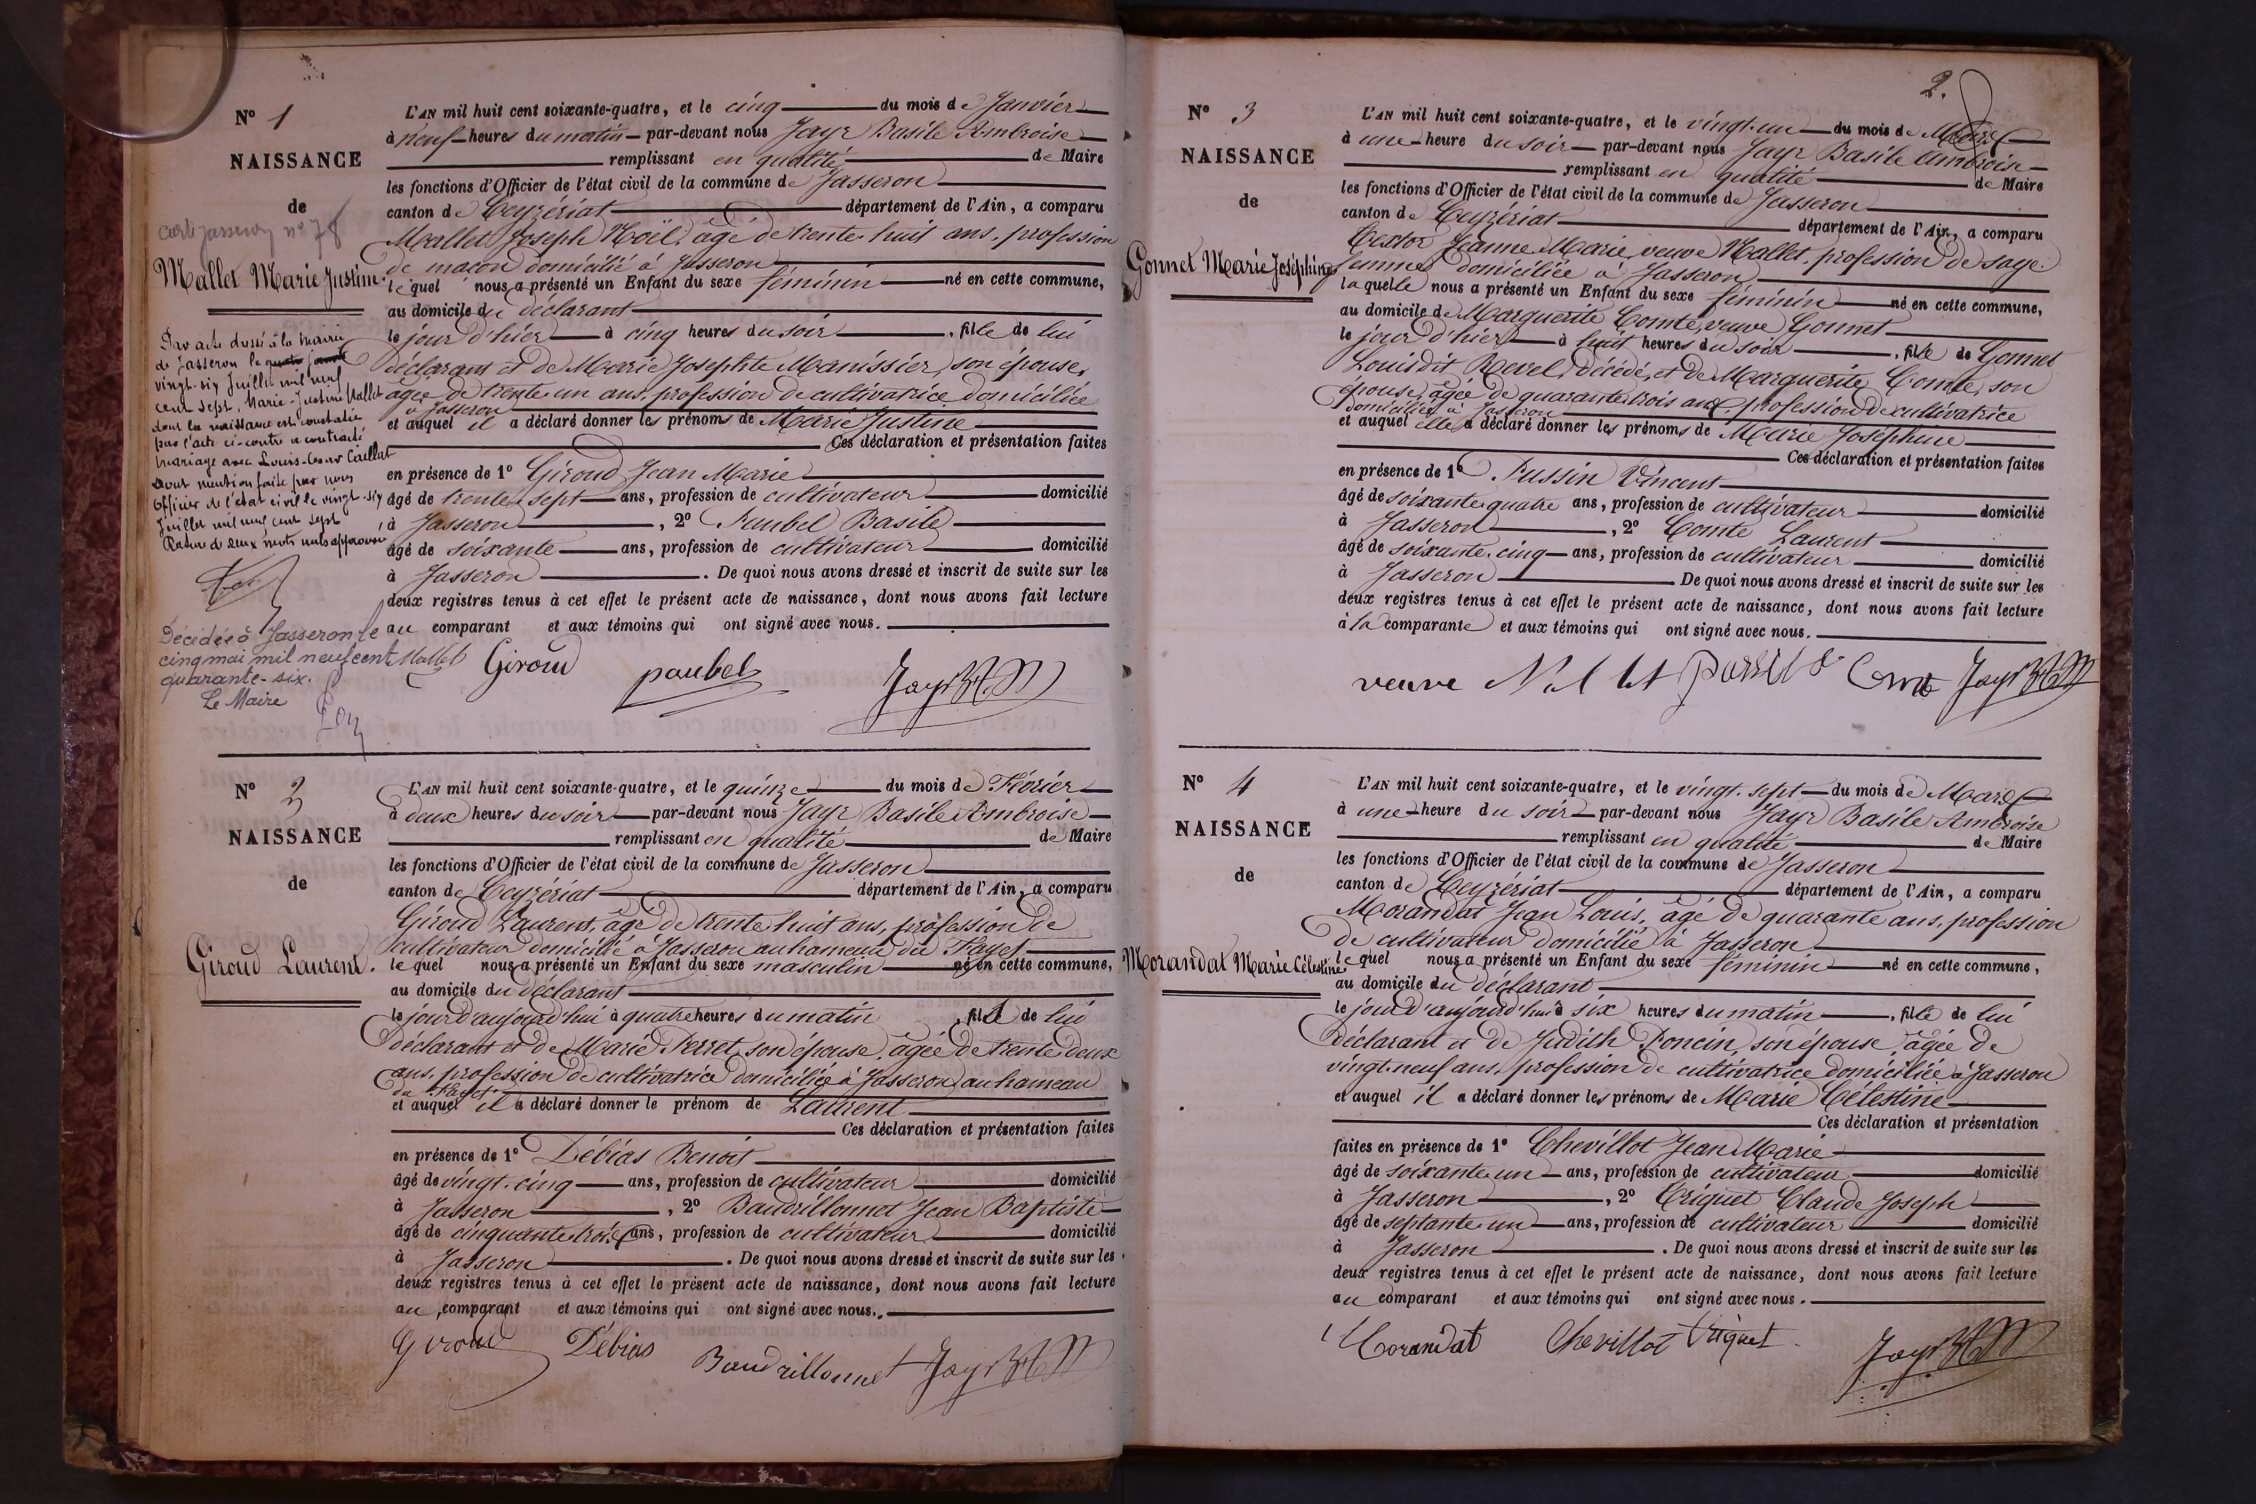 N° 1
NAISSANCE
de
carte Jasseron n° 78
Mallet Marie Justine.
Par acte dressé à la mairie
de Jasseron le
vingt-six Juillet mil neuf
cent sept, Marie-Justine Mallet
dont la naissance est constatée
par l'acte ci-contre a contracté
mariage avec Louis- Caillat
Dont mention faite par nous
Officier de l'état civil le vingt-six
Juillet mil neuf cent sept
Rature de deux mots nuls approuvée
Décédée à Jasseron le
cinq mai mil neuf cent
quarante-six.
Le Maire
L'AN mil huit cent soixante-quatre, et le cinq du mois de Janvier
à neuf heures du matin par-devant nous Jayr Basile Ambroise
remplissant en qualité de Maire
les fonctions d'Officier de l'état civil de la commune de Jasseron
canton de Ceyzériat département de l'Ain, a comparu
Mallet Joseph Noël, âgé de trente-huit ans, profession
de maçon domicilié à Jasseron
lequel nous a présenté un Enfant du sexe féminin né en cette commune,
au domicile du déclarant
le jour d'hier à cinq heures du soir, fille de lui
déclarant et de Marie Josephte Manissier, son épouse,
âgée de trente un ans, profession de cultivatrice domiciliée
à Jasseron
et auquel il a déclaré donner les prénoms de Marie Justine
Ces déclaration et présentation faites
en présence de 1° Giroud Jean Marie
âgé de trente-sept ans, profession de cultivateur domicilié
à Jasseron, 2° Paubel Basile
âgé de soixante ans, profession de cultivateur domicilié
à Jasseron. De quoi nous avons dressé et inscrit de suite sur les
deux registres tenus à cet effet le présent acte de naissance, dont nous avons fait lecture
au comparant et aux témoins qui ont signé avec nous.
Mallet Giroud paubel Jayr B A M
N° 2
NAISSANCE
de
Giroud Laurent.
L'AN mil huit cent soixante-quatre, et le quinze du mois de Février
à deux heures du soir par-devant nous Jayr Basile Ambroise
remplissant en qualité de Maire
les fonctions d'Officier de l'état civil de la commune de Jasseron
canton de Ceyzériat département de l'Ain, a comparu
Giroud Laurent, âgé de trente huit ans, profession de
cultivateur domicilié à Jasseron au hameau du Fayet
lequel nous a présenté un Enfant du sexe masculin né en cette commune,
au domicile du déclarant
le jour d'aujourd'hui à quatre heures du matin, fils de lui
déclarant et de Marie Perret, son épouse, âgée de trente deux
ans, profession de cultivatrice domiciliée à Jasseron au hameau
du Fayet
et auquel il a déclaré donner le prénom de Laurent
Ces déclaration et présentation faites
en présence de 1° Débias Benoit
âgé de vingt-cinq ans, profession de cultivateur domicilié
à Jasseron, 2° Baudrillonnet Jean Baptiste
âgé de cinquante trois ans, profession de cultivateur domicilié
à Jasseron. De quoi nous avons dressé et inscrit de suite sur les
deux registres tenus à cet effet le présent acte de naissance, dont nous avons fait lecture
au comparant et aux témoins qui ont signé avec nous.
Giroud Débias Baudrillonnet Jayr B A M
2.
N° 3
NAISSANCE
de
Gonnet Marie Joséphine
L'AN mil huit cent soixante-quatre, et le vingt-un du mois de Mars
à une heure du soir par-devant nous Jayr Basile Ambroise
remplissant en qualité de Maire
les fonctions d'Officier de l'état civil de la commune de Jasseron
canton de Ceyzériat département de l'Ain, a comparu
Textor Jeanne Marie veuve Mallet, profession de sage-
femme domiciliée à Jasseron
laquelle nous a présenté un Enfant du sexe féminin né en cette commune,
au domicile de Marguerite Comte, veuve Gonnet
le jour d'hier à huit heures du soir, fille de Gonnet
Louis dit Revel, décédé, et de Marguerite Comte, son
épouse, âgée de quarante trois ans, profession de cultivatrice
domiciliée à Jasseron
et auquel elle a déclaré donner les prénoms de Marie Joséphine
Ces déclaration et présentation faites
en présence de 1° Pussin Vincent
âgé de soixante quatre ans, profession de cultivateur domicilié
à Jasseron, 2° Comte Laurent
âgé de soixante-cinq ans, profession de cultivateur domicilié
à Jasseron. De quoi nous avons dressé et inscrit de suite sur les
deux registres tenus à cet effet le présent acte de naissance, dont nous avons fait lecture
à la comparante et aux témoins qui ont signé avec nous.
veuve Comte Jayr B A M
N° 4
NAISSANCE
de
Morandat Marie Célestine
L'AN mil huit cent soixante-quatre, et le vingt-sept du mois de Mars
à une heure du soir par-devant nous Jayr Basile Ambroise
remplissant en qualité de Maire
les fonctions d'Officier de l'état civil de la commune de Jasseron
canton de Ceyzériat département de l'Ain, a comparu
Morandat Jean Louis, âgé de quarante ans, profession
de cultivateur domicilié à Jasseron
lequel nous a présenté un Enfant du sexe féminin né en cette commune,
au domicile du déclarant
le jour d'aujourd'hui à six heures du matin, fille de lui
déclarant et de Judith Poncin, son épouse, âgée de
vingt-neuf ans, profession de cultivatrice domiciliée à Jasseron
et auquel il a déclaré donner les prénoms de Marie Célestine
Ces déclaration et présentation
faites en présence de 1° Chevillot Jean Marie
âgé de soixante un ans, profession de cultivateur domicilié
à Jasseron, 2° Criquet Claude Joseph
âgé de septante un ans, profession de cultivateur domicilié
à Jasseron. De quoi nous avons dressé et inscrit de suite sur les
deux registres tenus à cet effet le présent acte de naissance, dont nous avons fait lecture
au comparant et aux témoins qui ont signé avec nous.
Morandat Chevillot Jayr B A M